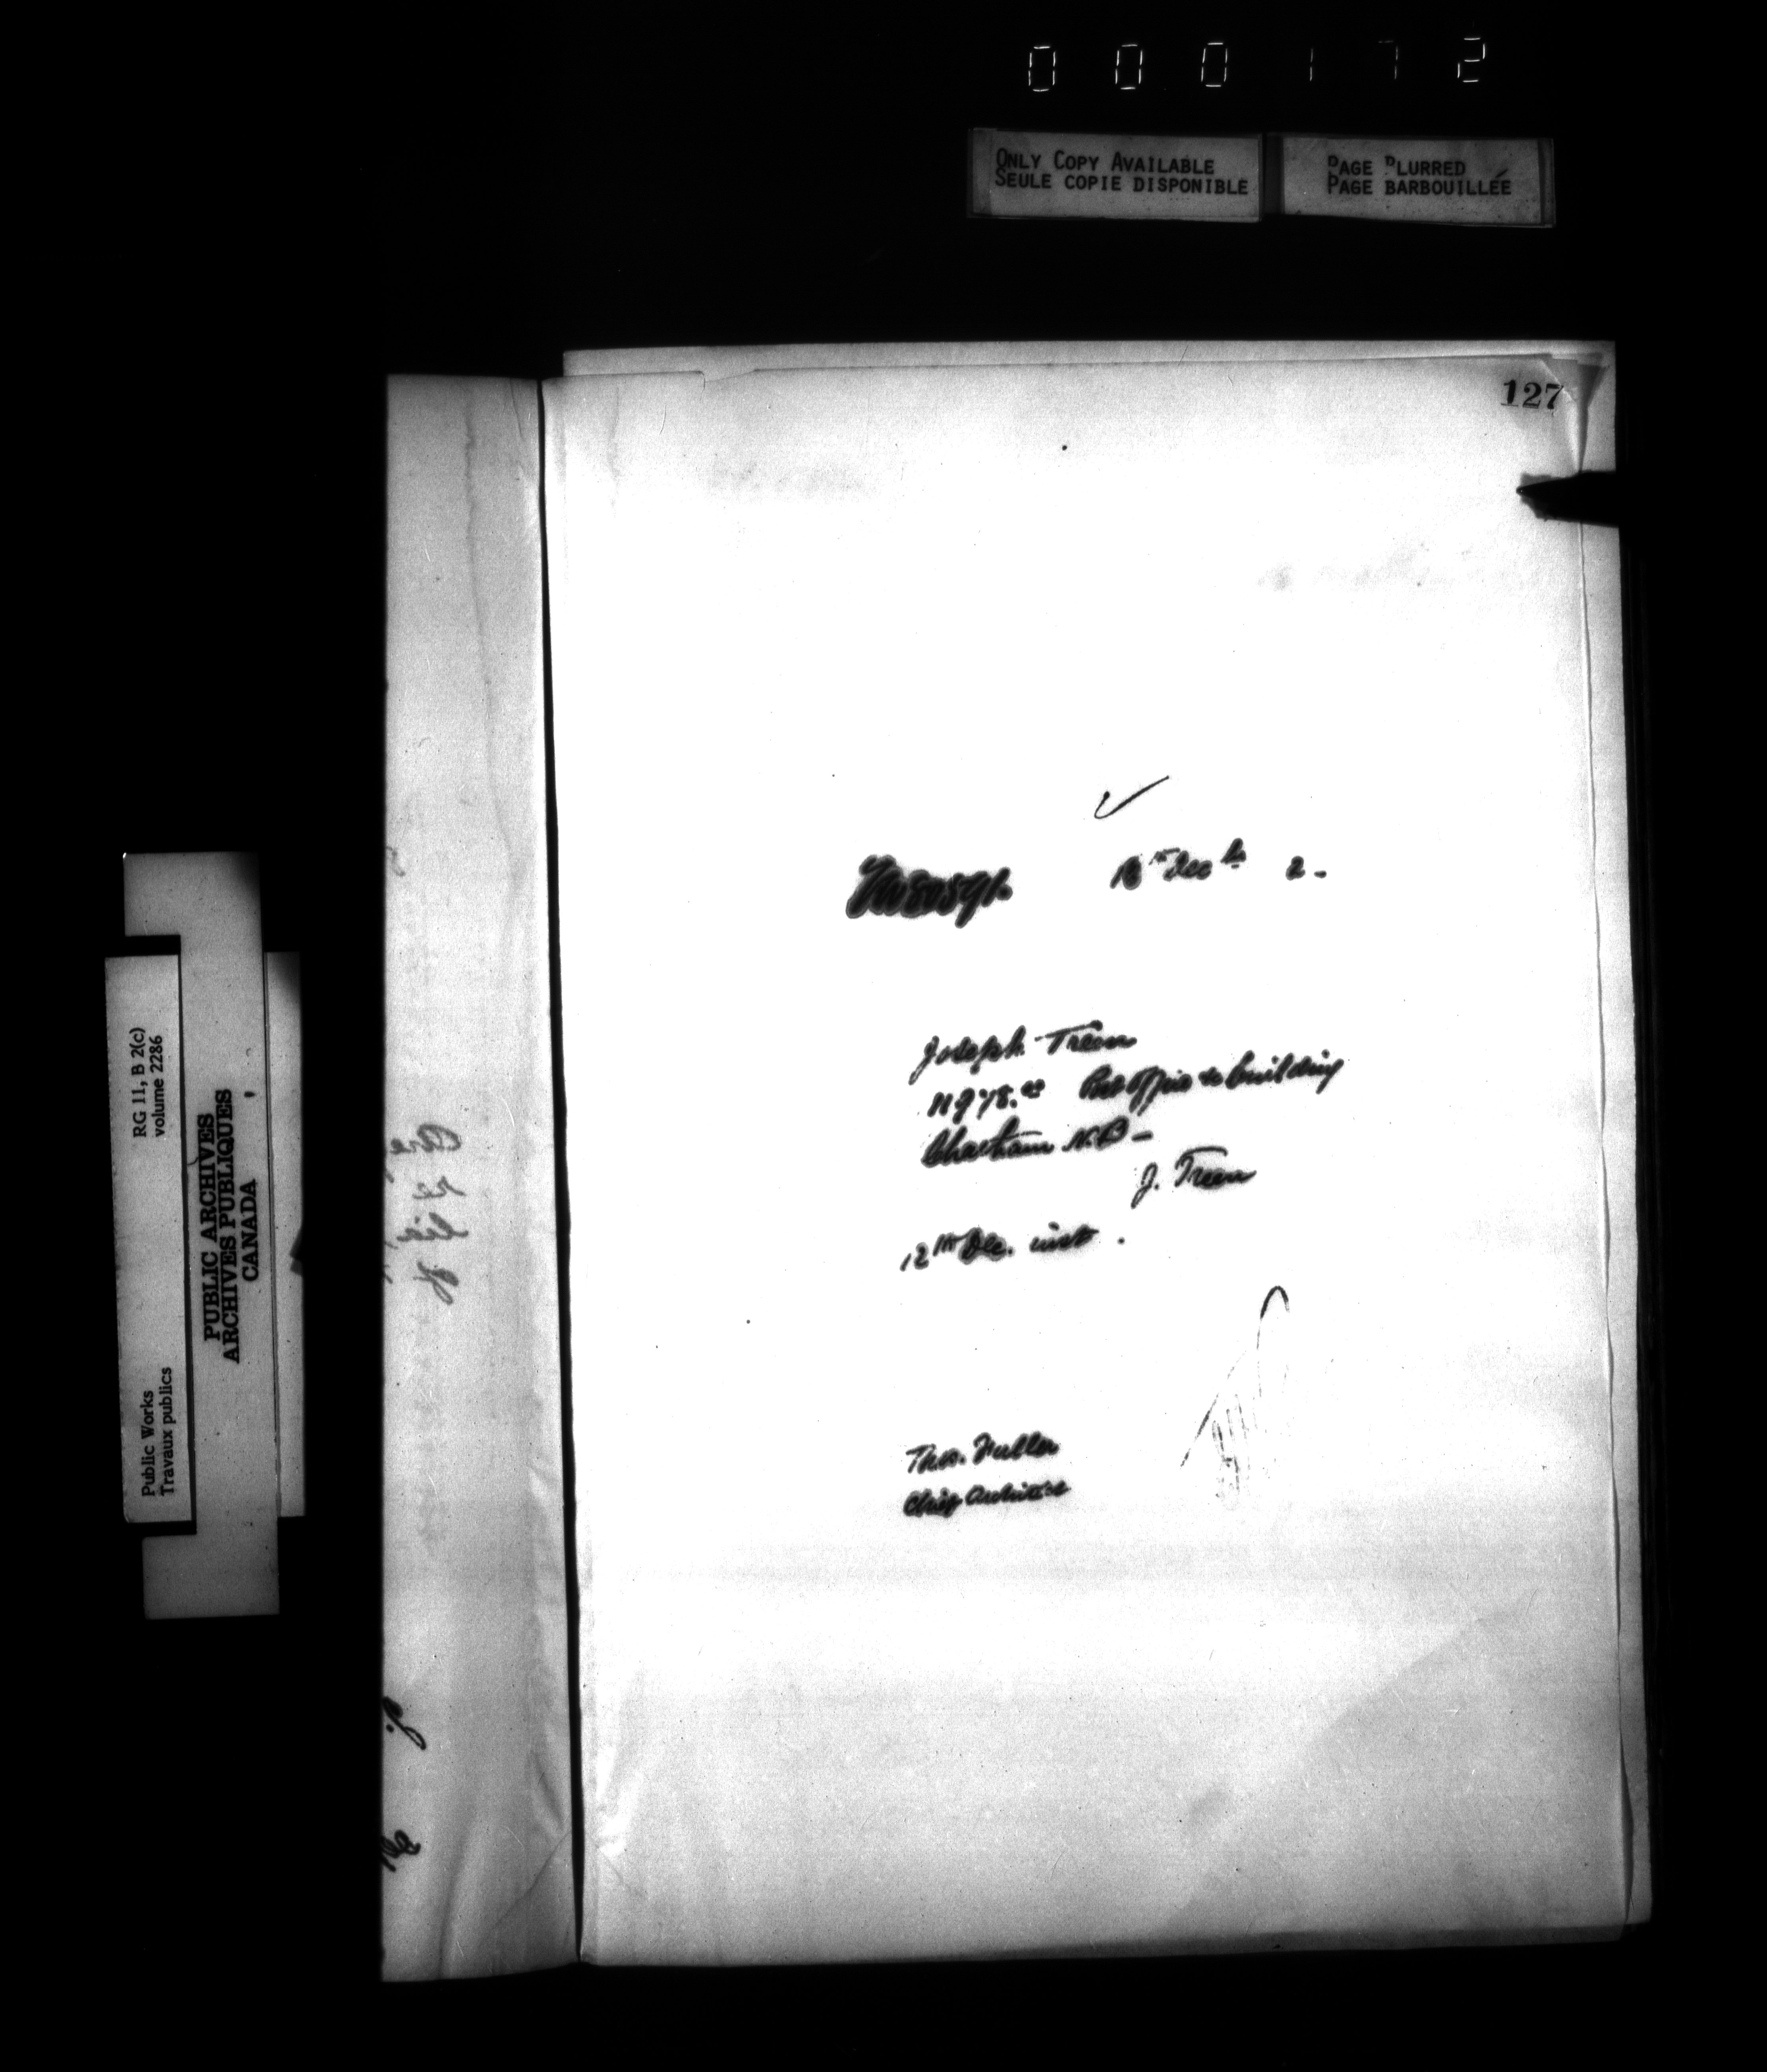 000172
ONLY COPY AVAILABLE
SEULE COPIE DISPONIBLE
PAGE BLURRED
PAGE BARBOUILLÉE
127
Dec 2-
Joseph Treen
Post Office & building
Chatham N.B-
J. Treen
12th Dec. inst.
Thos. Fuller
Chief Architect
RG 11, B 2(c)
volume 2286
Public Works
Travaux publics
PUBLIC ARCHIVES
ARCHIVES PUBLIQUES
CANADA